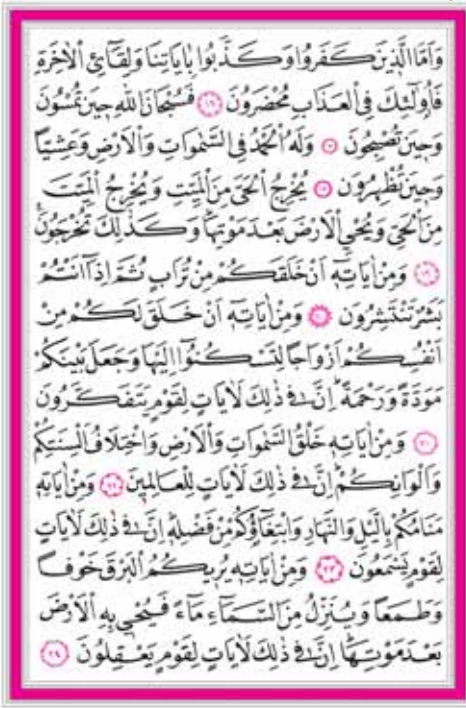 وَاَمَّا الَّذٖينَ كَفَرُوا وَكَذَّبُوا بِاٰيَاتِنَا وَلِقَٓائِ الْاٰخِرَةِ
فَاُولٰٓئِكَ فِي الْعَذَابِ مُحْضَرُونَ ﴿١٦﴾ فَسُبْحَانَ اللّٰهِ حٖينَ تُمْسُونَ
وَحٖينَ تُصْبِحُونَ ﴿١٧﴾ وَلَهُ الْحَمْدُ فِي السَّمٰوَاتِ وَالْاَرْضِ وَعَشِيًّا
وَحٖينَ تُظْهِرُونَ ﴿١٨﴾ يُخْرِجُ الْحَيَّ مِنَ الْمَيِّتِ وَيُخْرِجُ الْمَيِّتَ
مِنَ الْحَيِّ وَيُحْيِ الْاَرْضَ بَعْدَ مَوْتِهَا وَكَذٰلِكَ تُخْرَجُونَ
﴿١٩﴾ وَمِنْ اٰيَاتِهٖٓ اَنْ خَلَقَكُمْ مِنْ تُرَابٍ ثُمَّ اِذَٓا اَنْتُمْ
بَشَرٌ تَنْتَشِرُونَ ﴿٢٠﴾ وَمِنْ اٰيَاتِهٖٓ اَنْ خَلَقَ لَكُمْ مِنْ
اَنْفُسِكُمْ اَزْوَاجًا لِتَسْكُنُٓوا اِلَيْهَا وَجَعَلَ بَيْنَكُمْ
مَوَدَّةً وَرَحْمَةً اِنَّ فٖي ذٰلِكَ لَاٰيَاتٍ لِقَوْمٍ يَتَفَكَّرُونَ
﴿٢١﴾ وَمِنْ اٰيَاتِهٖ خَلْقُ السَّمٰوَاتِ وَالْاَرْضِ وَاخْتِلَافُ اَلْسِنَتِكُمْ
وَاَلْوَانِكُمْ اِنَّ فٖي ذٰلِكَ لَاٰيَاتٍ لِلْعَالِمٖينَ ﴿٢٢﴾ وَمِنْ اٰيَاتِهٖ
مَنَامُكُمْ بِالَّيْلِ وَالنَّهَارِ وَابْتِغَٓاؤُكُمْ مِنْ فَضْلِهٖ اِنَّ فٖي ذٰلِكَ لَاٰيَاتٍ
لِقَوْمٍ يَسْمَعُونَ ﴿٢٣﴾ وَمِنْ اٰيَاتِهٖ يُرٖيكُمُ الْبَرْقَ خَوْفًا
وَطَمَعًا وَيُنَزِّلُ مِنَ السَّمَٓاءِ مَٓاءً فَيُحْيٖ بِهِ الْاَرْضَ
بَعْدَ مَوْتِهَا اِنَّ فٖي ذٰلِكَ لَاٰيَاتٍ لِقَوْمٍ يَعْقِلُونَ ﴿٢٤﴾